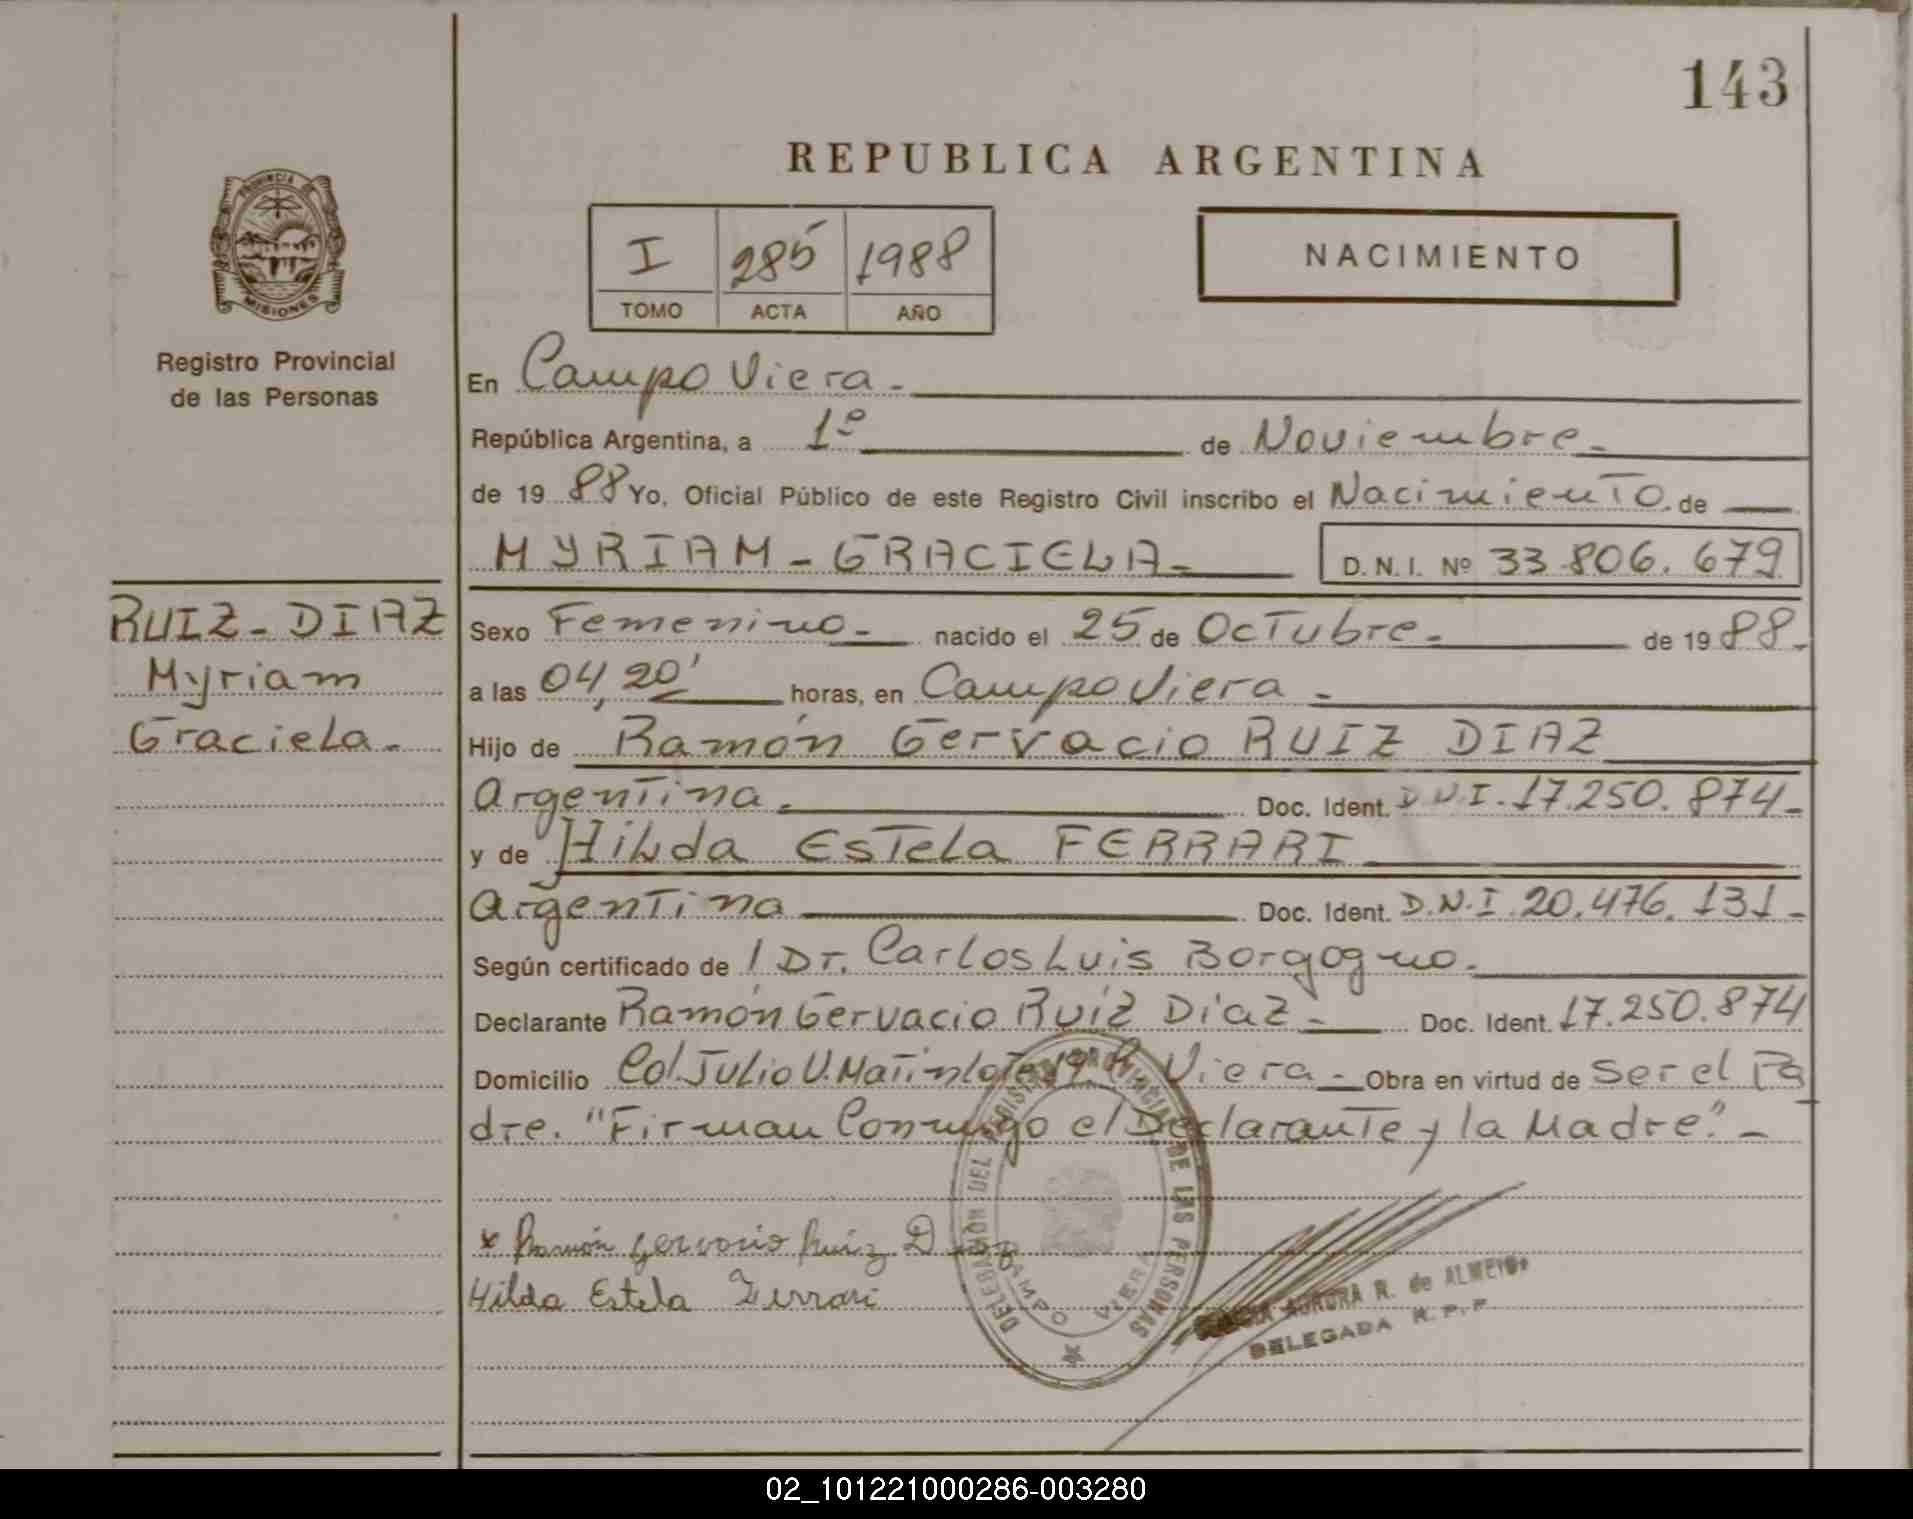 143
REPUBLICA ARGENTINA
PROVINCIA DE
MISIONES
Registro Provincial
de las Personas
I 285 1988
TOMO ACTA AÑO
NACIMIENTO
En Campo Viera.
República Argentina, a 1º de Noviembre.
de 19 88 Yo, Oficial Público de este Registro Civil inscribo el Nacimiento. de
MYRIAM - GRACIELA - D.N.I. Nº 33.806.679
RUIZ - DIAZ
Myriam
Graciela.
Sexo Femenino. nacido el 25 de Octubre. de 19 88.
a las 04,20' horas, en Campo Viera.
Hijo de Ramón Gervacio RUIZ DIAZ
Argentina. Doc. Ident. D.N.I. 17.250.874-
y de Hilda Estela FERRARI
Argentina Doc. Ident. D.N.I. 20.476.131-
Según certificado de Dr. Carlos Luis Borgogno.
Declarante Ramón Gervacio Ruíz Díaz - Doc. Ident. 17.250.874
Domicilio Col. Julio U. Viera - Obra en virtud de Ser el Pa
dre. "Firman Conmigo el Declarante y la Madre." -
x Ramón Gervacio Ruiz D
Hilda Estela Ferrari
DEL REGISTRO PROVINCIAL DE LAS PERSONAS
CAMPO VIERA
AURORA R. de ALMEIDA
DELEGADA R.P.P.
02_101221000286-003280